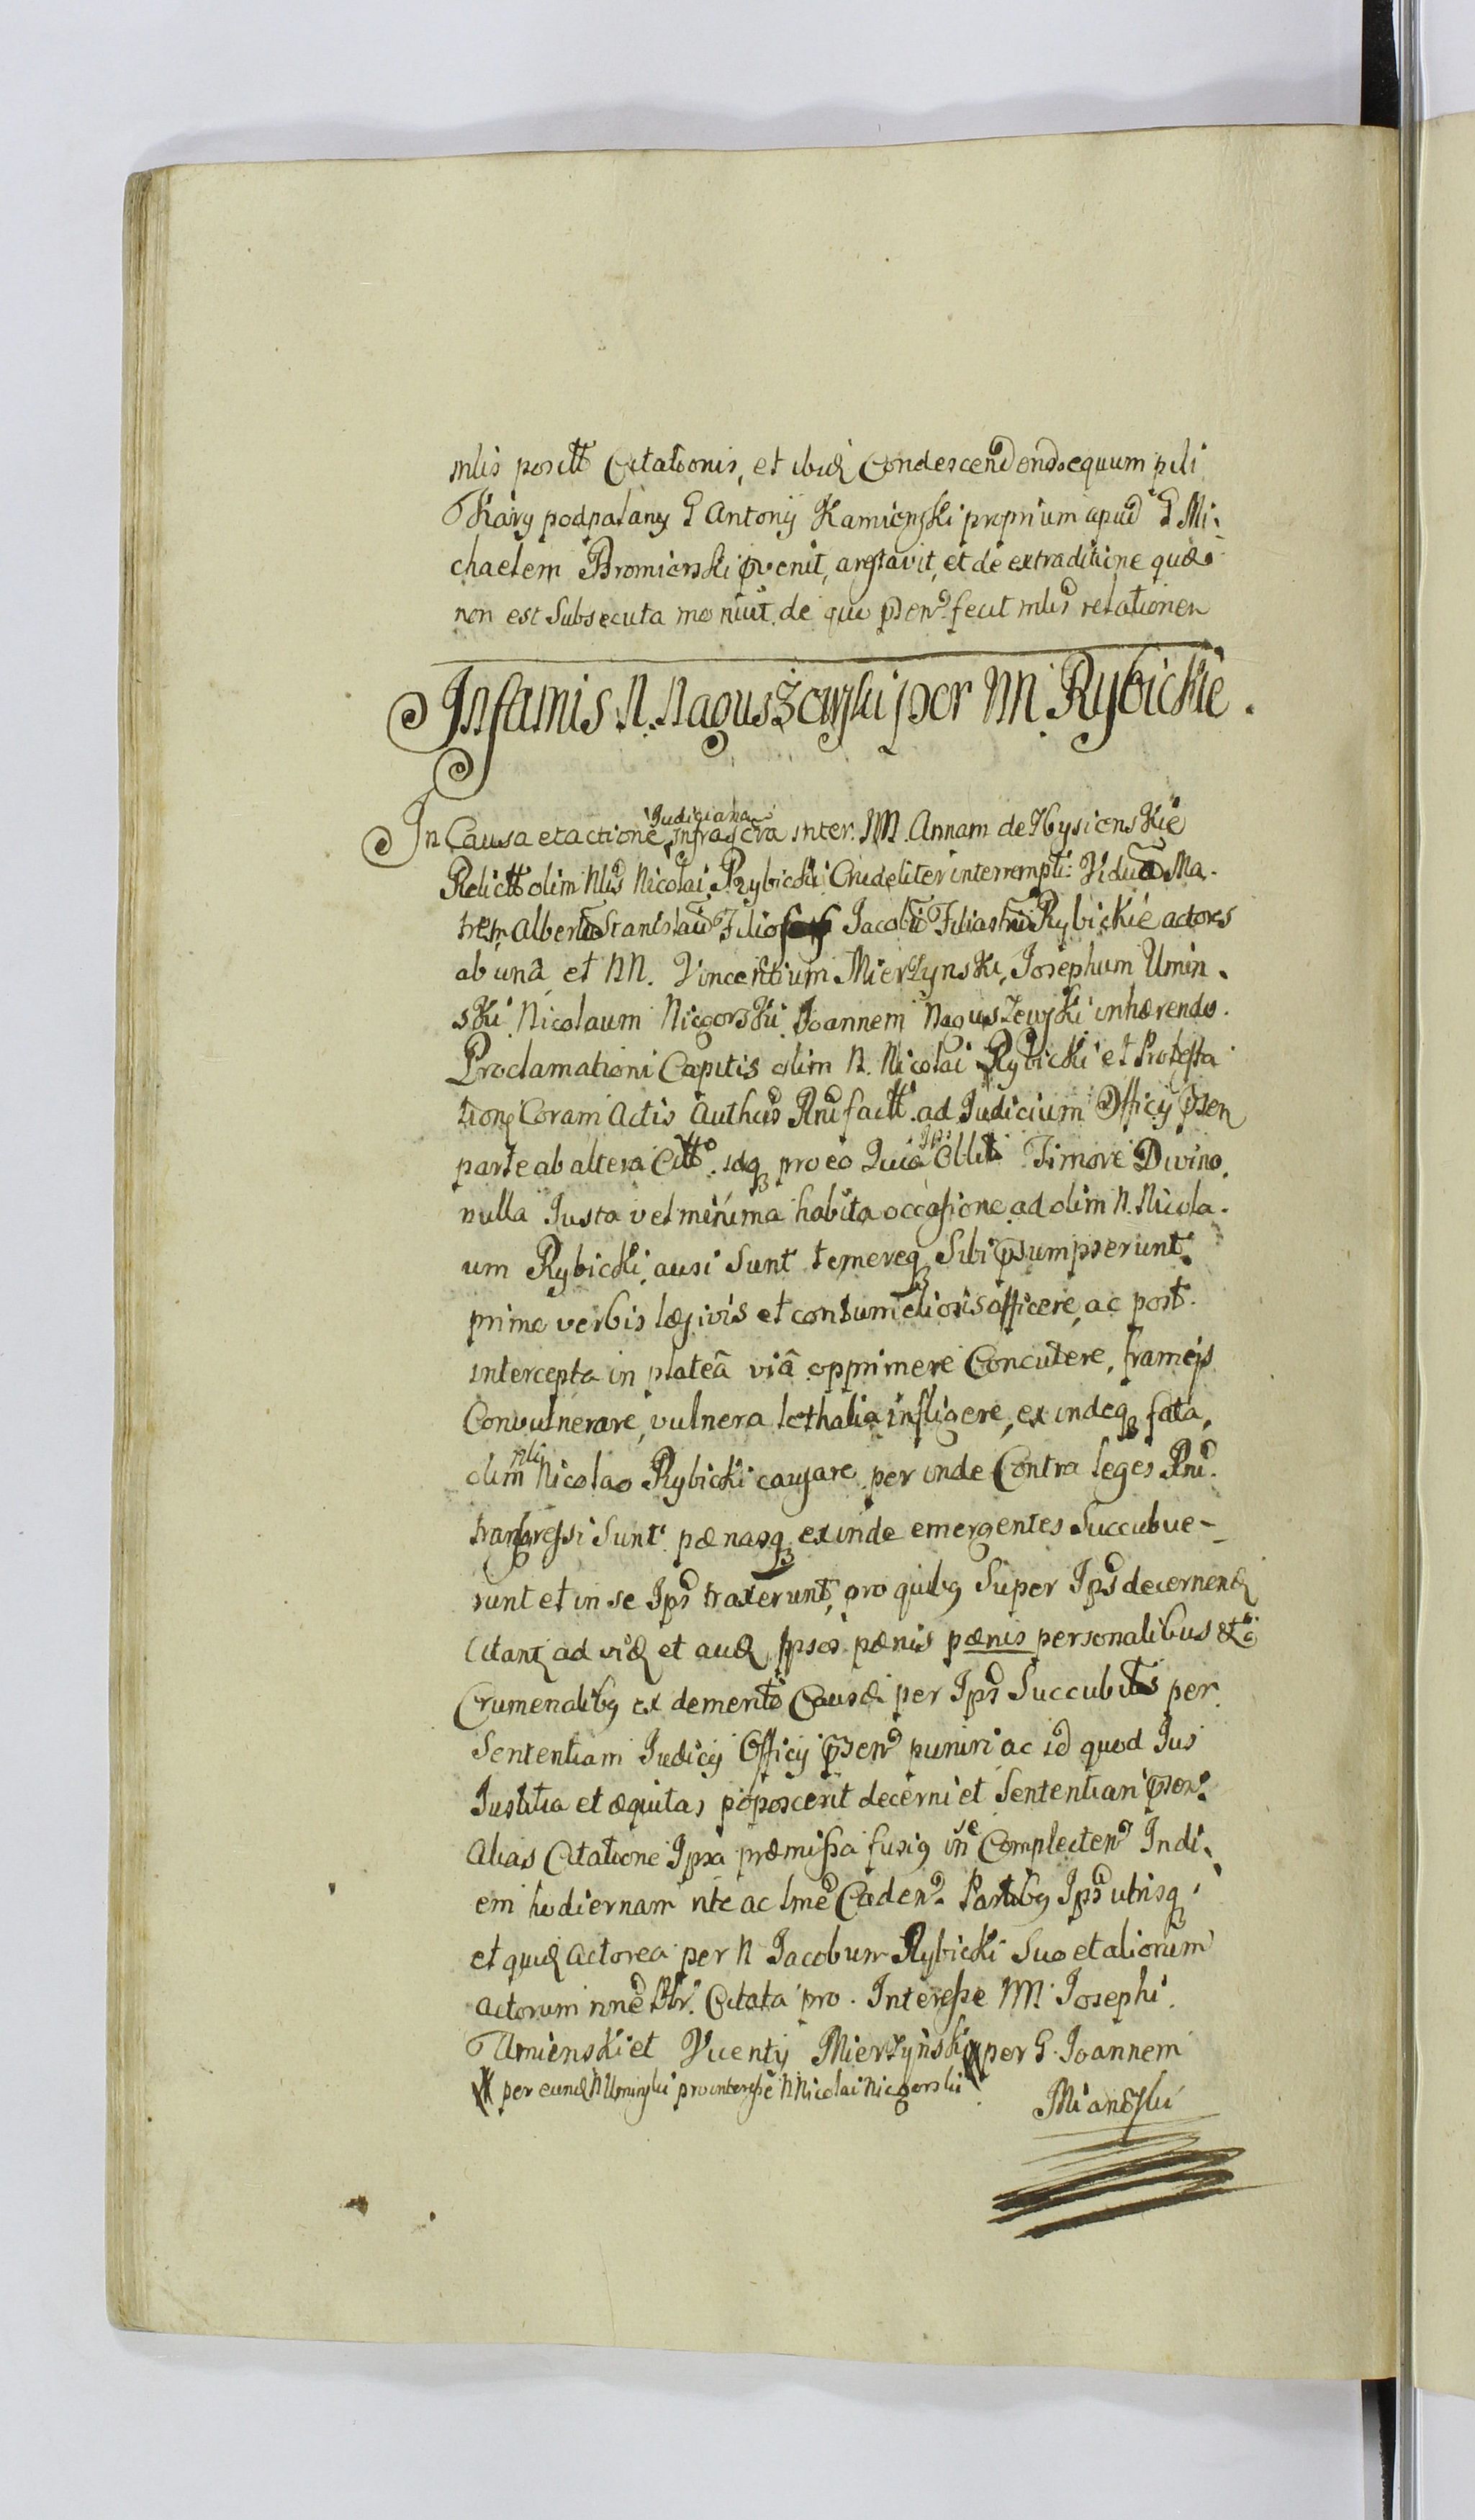 mlis positt Citationis, et ibid Condescendendo equum pili
Kary podpalany G Antonij Kamienski proprium apud G Mi-
chaelem Bromierski pvenit, arestavit, et de extraditione quæ
non est Subsecuta moniūt de quo psens fecit mlis relationem
Infamis N. Naguszewski per NN. Rybickie.
In Causa et actione Judiciaria infrascta inter. NN. Annam de Hysienskie
Relictt olim Nlis Nicolai Rybicki Crudeliter interrempti Viduā Ma-
trem Albertū Stanislaū Filios Jacobū Filiastrū Rybickie actores
ab unâ et NN. Vincentium Mierzynski, Josephum Umin-
ski Nicolaum Nicgorski Joannem Naguszewski inhærendo
Proclamationi Capitis olim N. Nicolai Rybicki et Protesta
tione Coram Actis Authcis Rni factt ad Judicium Officij psen
parte ab altera Citto idq pro eo Quia Ipi Oblit Timore Divino,
nulla Justa vel minima habita occasione ad olim N. Nicola-
um Rybicki, ausi Sunt temereq Sibi psumpserunt
primo verbis læsivis et contumeliosis afficere, ac post
intercepta in plateâ viâ opprimere Concutere, frameis
Convulnerare, vulnera lethalia infligere, ex indeq fata,
olim Nli Nicolao Rybicki causare per inde Contra leges Rni
transgressi Sunt pænasq exinde emergentes Succubue-
runt et in se Ips traxerunt, pro quibq Super Ips decernend
Citant ad vid et aud Ipsos pænis pænis personalibus et
Crumenalibq ex demerito Causæ per Ips Succubitis per
Sententiam Judicij Officij psens puniri ac id quod Jus
Justitia et æquitas poposcerit decerni et Sententiari psens
alias Citatione Ipsa præmissa fusiq in se Complecten Indi-
em hodiernam rite ac lme Caden Partibq Ips utrisq
et quid actorea per N Jacobum Rybicki Suo et aliorum
actorum nne Citata pro. Interesse NN. Josephi
Umienski et Vicenty Mierzynski per G. Joannem
per eund N Uminski pro interesse N Nicolai Nicgorski
Mianowski